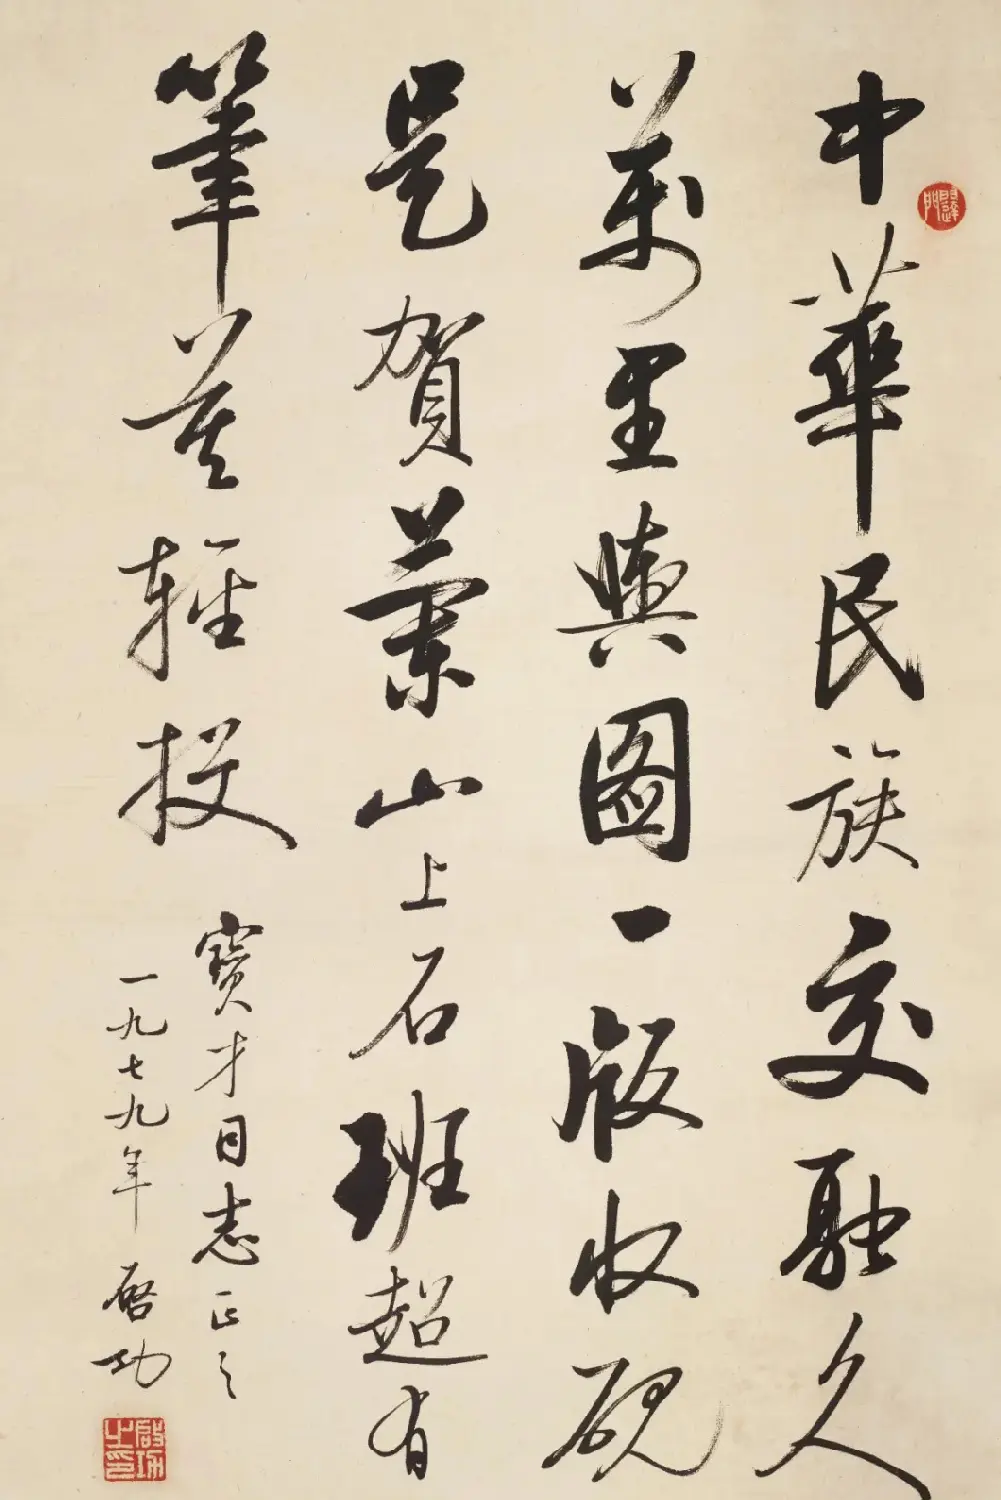 中華民族交融久
萬里輿圖一版收硯
是賀蘭山上石班超有
筆莫輕投
寶才同志正之
一九七九年 啓功
啟功之印